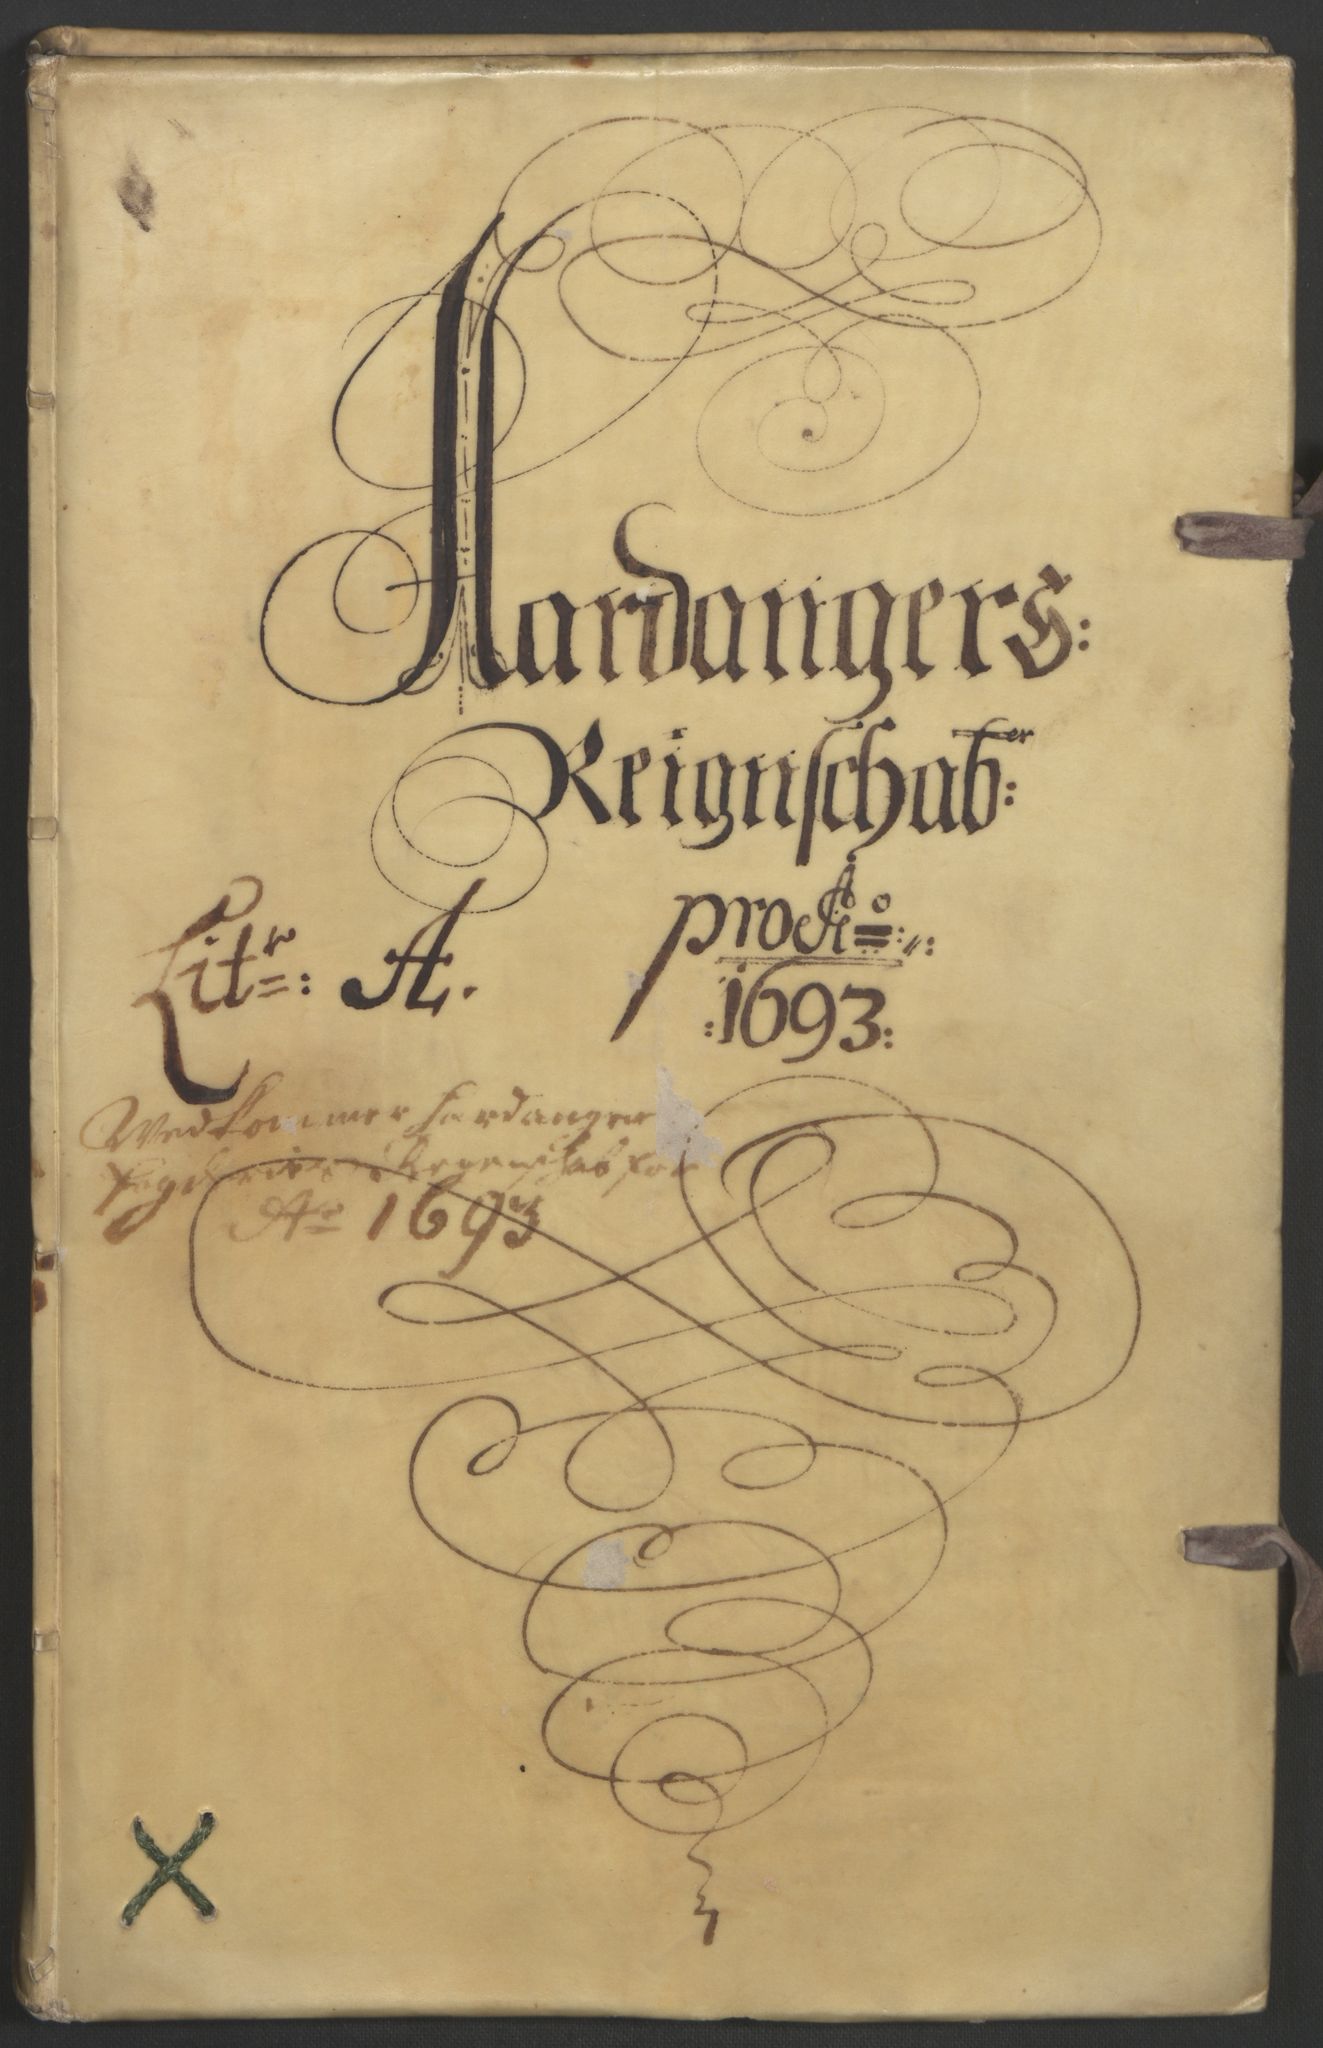 Hardangers:
Reignschaber:
Litr: A.
pro Ao:
:1693:
Wedkommer Hardanger
Fogderies Regenschab for
Ao 1693